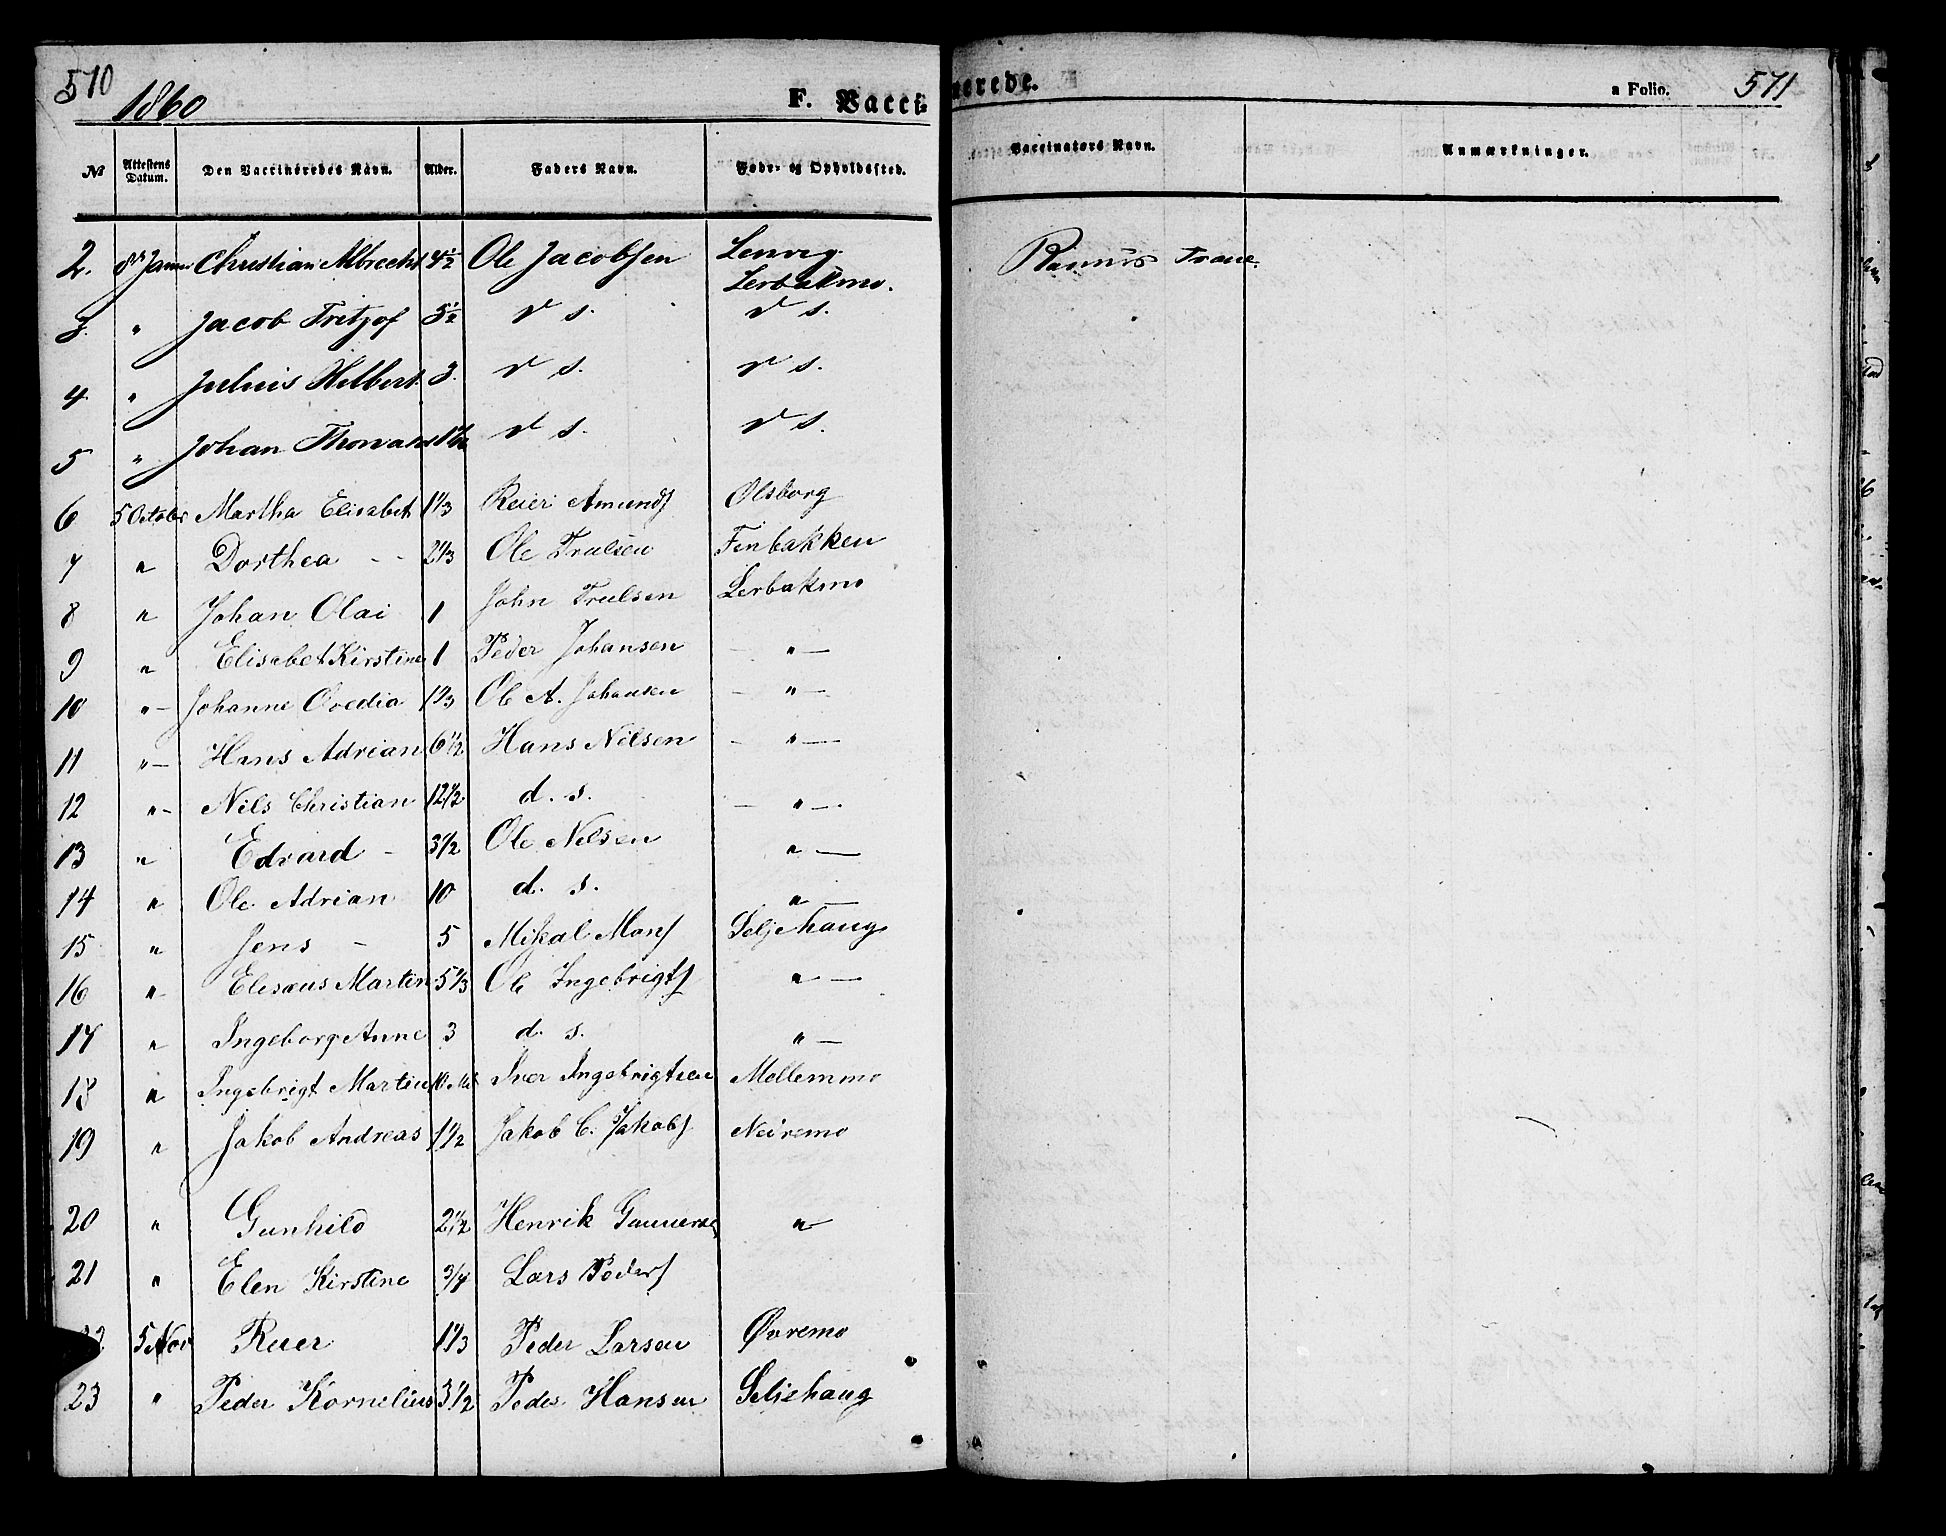 510
1860
F. Vacci-
nerede.
a Folio. 571
№ Attestens Datum. Den Vaccineredes Navn. Alder. Faders Navn. Føde- og Opholdssted. Vaccinators Navn. Anmærkninger.
2. 8 Janu Christian Albrecht 4½ Ole Jacobsen Lenvig Rasmus Trane.
Lerbakmo.
3. " Jacob Fritjof 5½ d s. d s.
4 " Julius Hilbert. 3. d s. d s.
5 " Johan d s. d s.
6 5 October Martha Elisabet 1⅓ Reier Amunds Olsborg
7 " Dorthea - - 2⅓ Ole Trulsen Finbakken
8 " Johan Olai 1 John Trulsen Lerbakmo
9 " Elisabet Kirstine 1 Peder Johansen - " -
10 " - Johanne Ovedia 1⅔ Ole A. Johansen - " -
11 " - Hans Adrian 6½ Hans Nilsen - " -
12 " - Nils Christian 12½ d. s. - " -.
13 " Edvard - 3½ Ole Nilsen " -
14 " Ole Adrian 10 d. s. " -
15 " Jens - 5 Mikal Mons Seljehaug
16 " Elesæus Martin 5⅓ Ole Ingebrigts " -
17 " Ingeborg Anne 3 d. s. " -
18 " Ingebrigt Martin Iver Ingebrigtsen Mollemmo
19 " Jakob Andreas 1½ Jakob C. Jakobs Neiremo
20 " Gunhild 2½ Henrik "
21 " Elen Kirstine ¾ Lars Peders
5 Nov Reier 1⅓ Peder Larsen Øvremo
23 " Peder Kornelius 3½ Peder Hansen Seljehaug